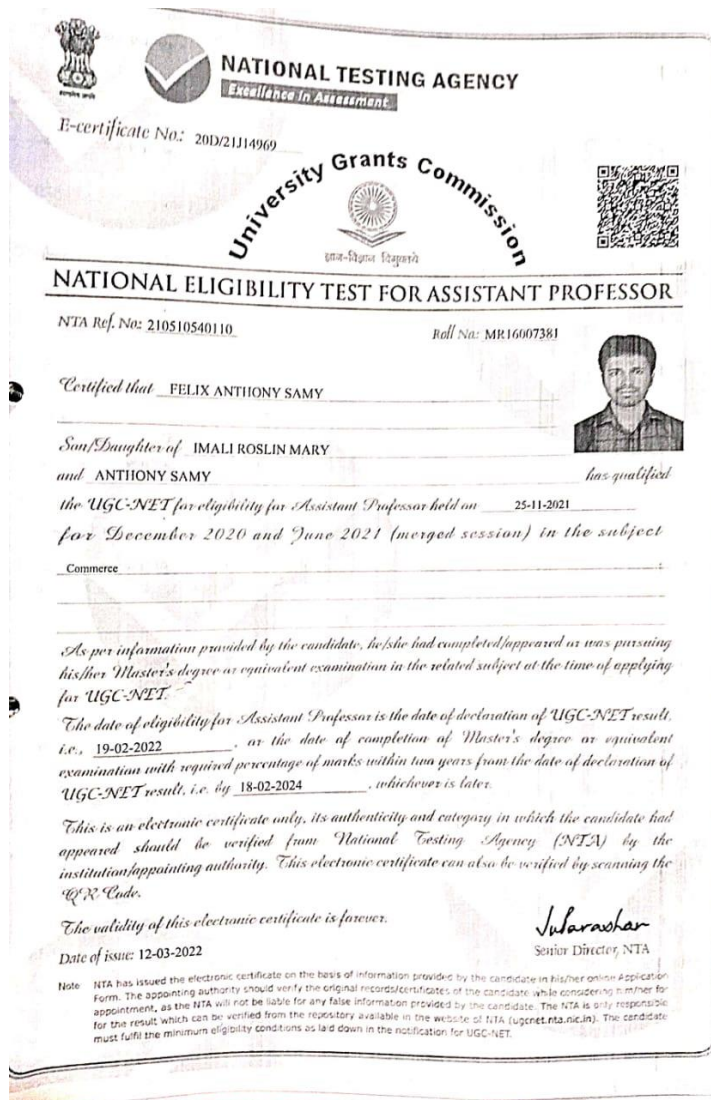 NATIONAL TESTING AGENCY
Excellence in Assessment
E-certificate No.: 20D/21J14969
University Grants Commission
ज्ञान-विज्ञान विमुक्तये
NATIONAL ELIGIBILITY TEST FOR ASSISTANT PROFESSOR
NTA Ref. No.: 210510540110
Roll No.: MR16007381
Certified that FELIX ANTHONY SAMY
Son/Daughter of IMALI ROSLIN MARY
and ANTHONY SAMY has qualified
the UGC-NET for eligibility for Assistant Professor held on 25-11-2021
for December 2020 and June 2021 (merged session) in the subject
Commerce
As per information provided by the candidate, he/she had completed/appeared or was pursuing
his/her Master's degree or equivalent examination in the related subject at the time of applying
for UGC-NET.
The date of eligibility for Assistant Professor is the date of declaration of UGC-NET result,
i.e., 19-02-2022, or the date of completion of Master's degree or equivalent
examination with required percentage of marks within two years from the date of declaration of
UGC-NET result, i.e. by 18-02-2024, whichever is later.
This is an electronic certificate only, its authenticity and category in which the candidate had
appeared should be verified from National Testing Agency (NTA) by the
institution/appointing authority. This electronic certificate can also be verified by scanning the
QR Code.
The validity of this electronic certificate is forever.
Date of issue: 12-03-2022
Senior Director, NTA
Note NTA has issued the electronic certificate on the basis of information provided by the candidate in his/her online Application
Form. The appointing authority should verify the original records/certificates of the candidate while considering him/her for
appointment, as the NTA will not be liable for any false information provided by the candidate. The NTA is only responsible
for the result which can be verified from the repository available in the website of NTA (ugcnet.nta.nic.in). The candidate
must fulfil the minimum eligibility conditions as laid down in the notification for UGC-NET.